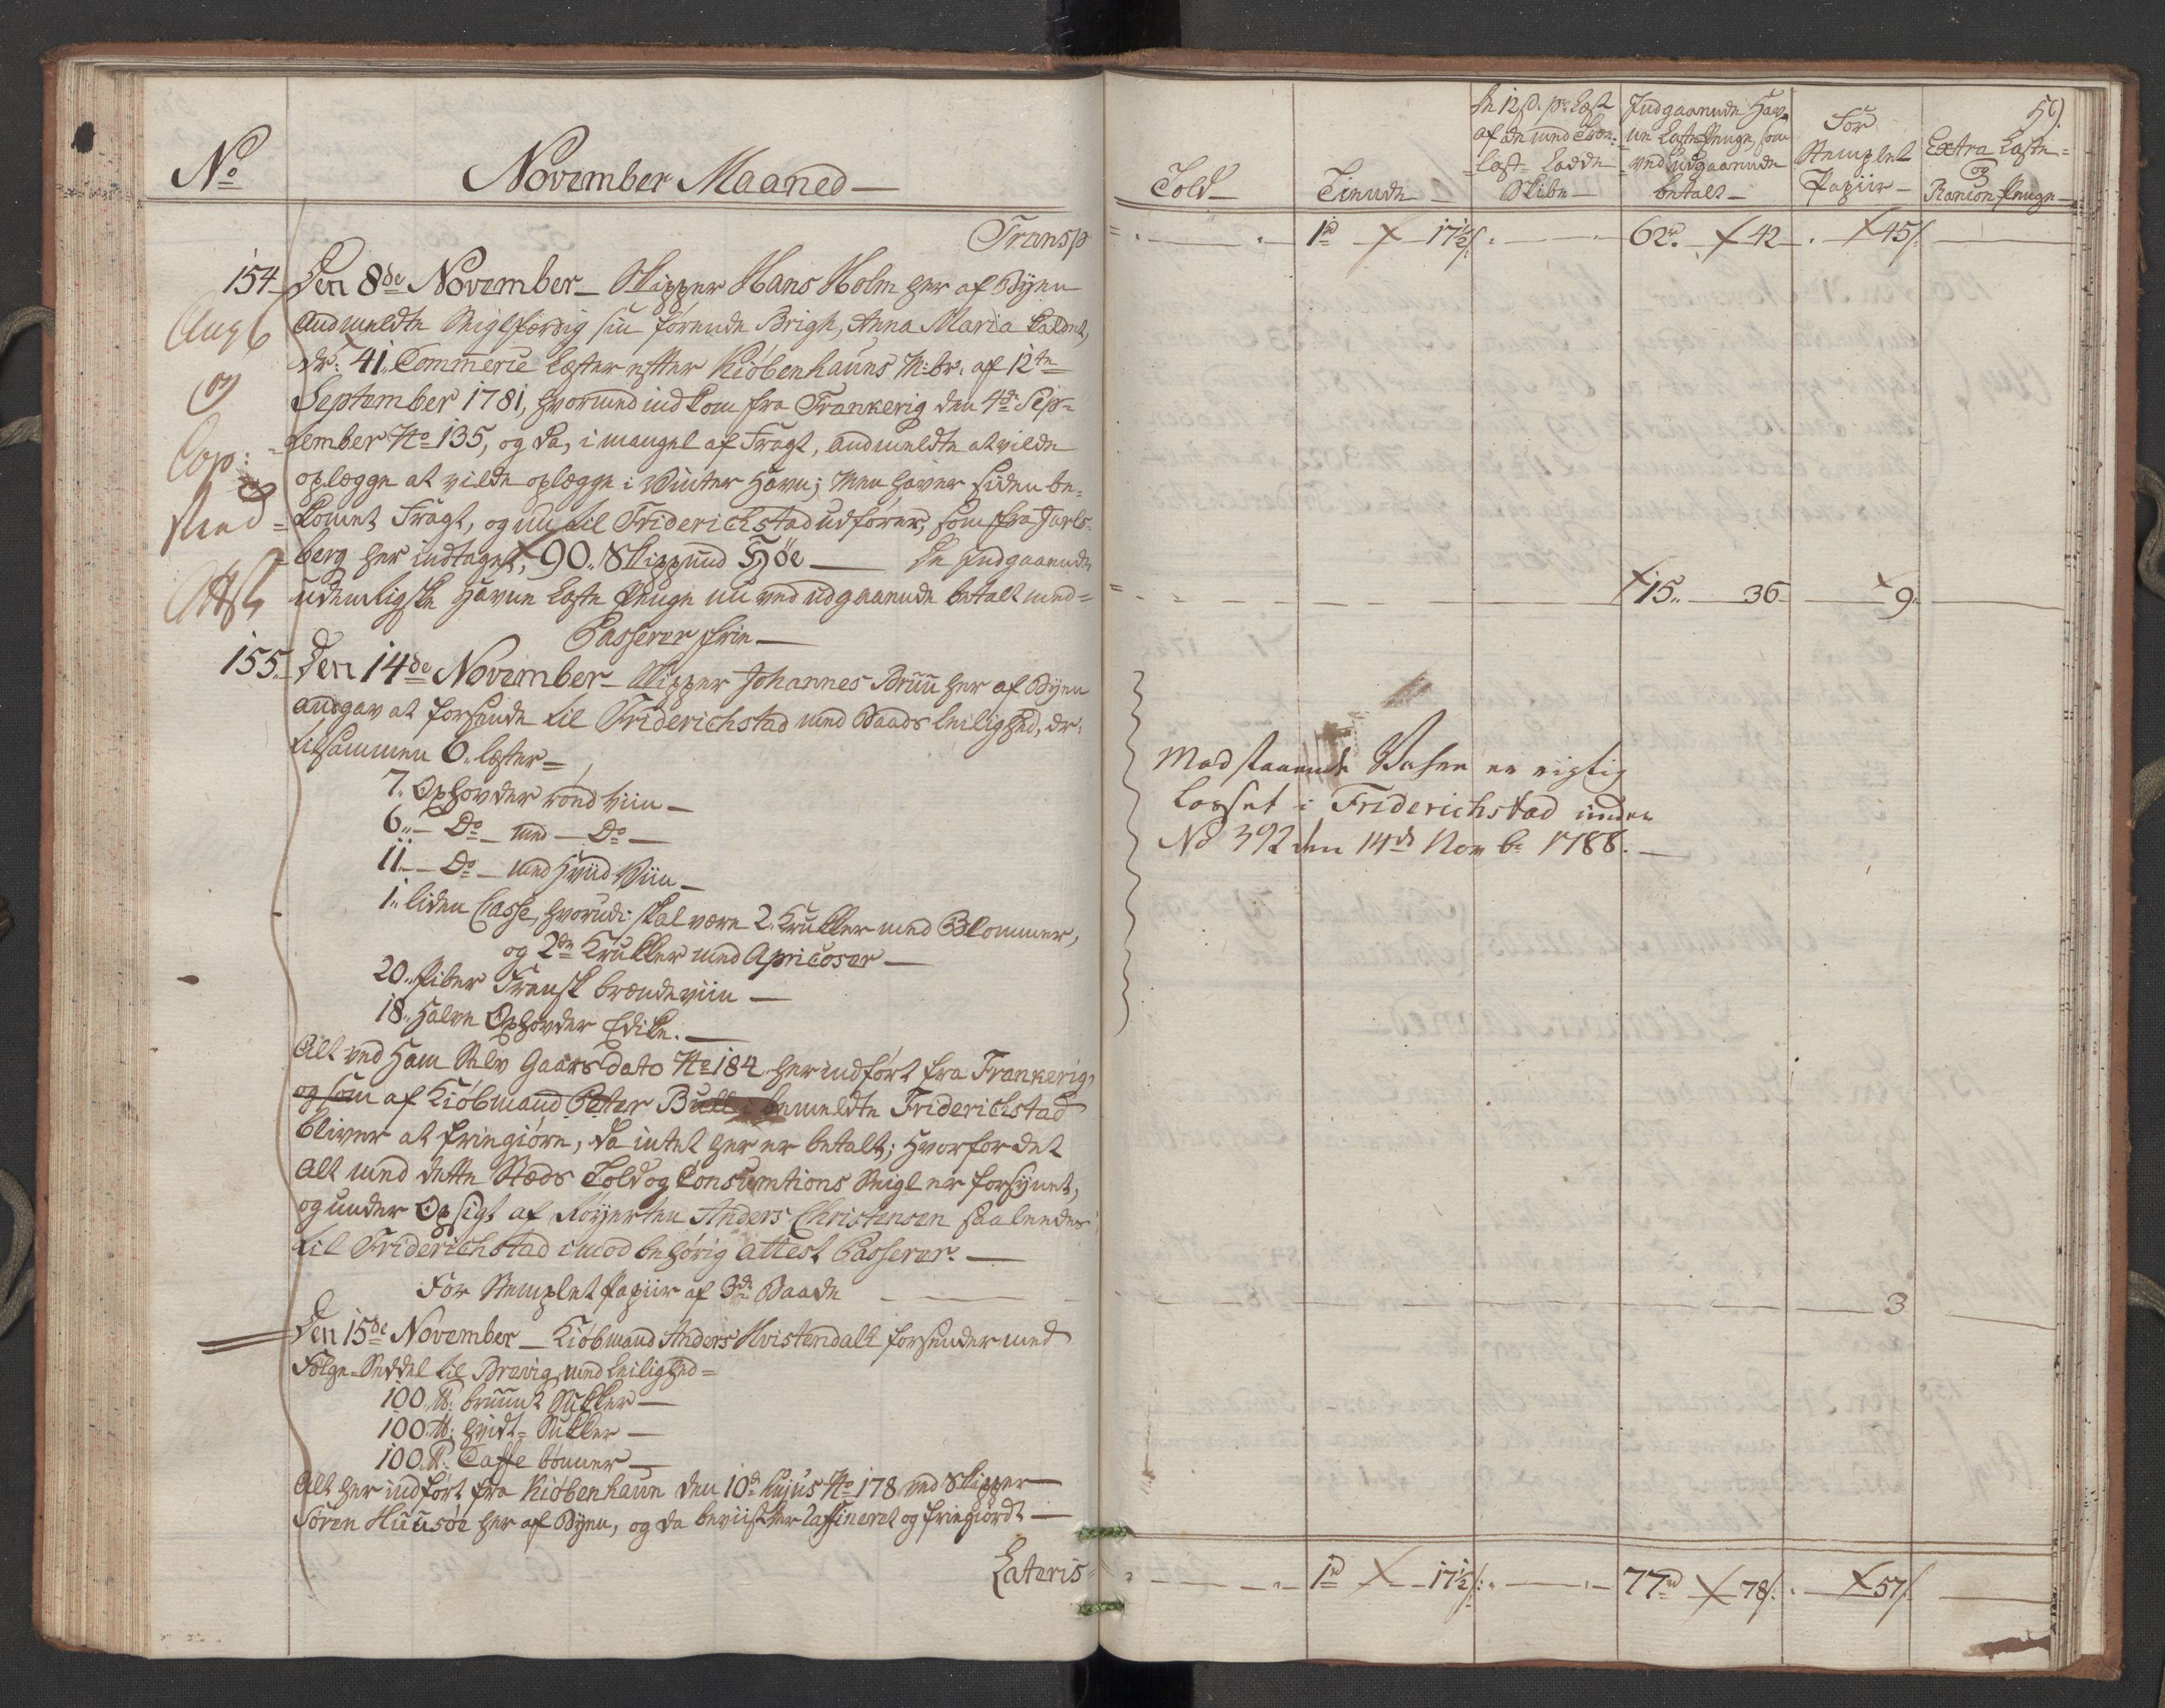 No
November Maaned
Transp
154 Den 8de November Skipper Hans Holm her af Byen
Ang
Andmeldte Seigelfærdig sin førende Brigh, Anna Maria kaldet,
dr: 41 Commerce Læster efter Kiøbenhauns M:br: af 12te
og
September 1781, hvormed indkom fra Frankerig den 4de Sep-
tember No 135, og da, i mangel af Fragt, andmeldte at vilde
Cop:
oplegge at vilde oplegge i Winter Havn; Men haver siden be-
komet Fragt, og nu til Friderichstad udfører, som fra Jarls-
Med
berg her indtaget, 90 Skippund Høe De Indgaaende
udenrigske Havne Laste Penge nu ved udgaaende betalt med
Attst
Passerer frie
155 Den 14de November Skipper Johannes Bruu her af Byen
andgav at forsende til Friderichstad med Baads Leilighed, dr:
tilsammen 6 læster
7 Oxhovder rød Viin
6 Do med Do
11 Do med Hvid Viin
1 liden Casse, hvorudi skal være 2 Krukker med Blommer,
og 2de Krukker med Apricoser
20 Piber Fransk brændeviin
18 Halve Oxhovder Edike.
Alt ved Ham Selv Gaars dato No 184 her indført fra Frankerig,
og som af Kiøbmand Peter Bull i bemeldte Friderichstad
bliver at friegiøre, da intet her er betalt; hvorfor det
Alt med dette Stæds Told og Consumtions Seigl er forsynet,
og under Opsigt af Røyerten Anders Christensen saaleedes
til Friderichstad imod behørig Attest Passerer.
For Stemplet Papiir af 3de Baade
Den 15de November Kiøbmand Anders Hvistendahl forsender med
Følge-Seddel til Brevig med Leilighed
100 ℔: bruunt Sukker
100 ℔: hvidt Sukker
100 ℔: Caffe bønner
Alt her indført fra Kiøbenhavn den 10de hujus No 178 ved Skipper
Søren Huusøe her af Byen, og da beviist her Caffineret og friegiordt
Lateris
59.
Told
Tiende
A 12 s. pr Læst af de med Træ-
last ladde Skibe
Indgaaende Hav-
ne Laste Penge, som
ved udgaaende
betalt
For
Stemplet
Papiir
Extra Laste
og
Rancon Penge
1rd 17½ s. 62rd 42 45 s.
15 36 9
Modstaaende Vahre er rigtig
losset i Friderichstad under
No 392 den 14de Novbr 1788.
3
1rd 17½ s. 77rd 78 s. 57 s.